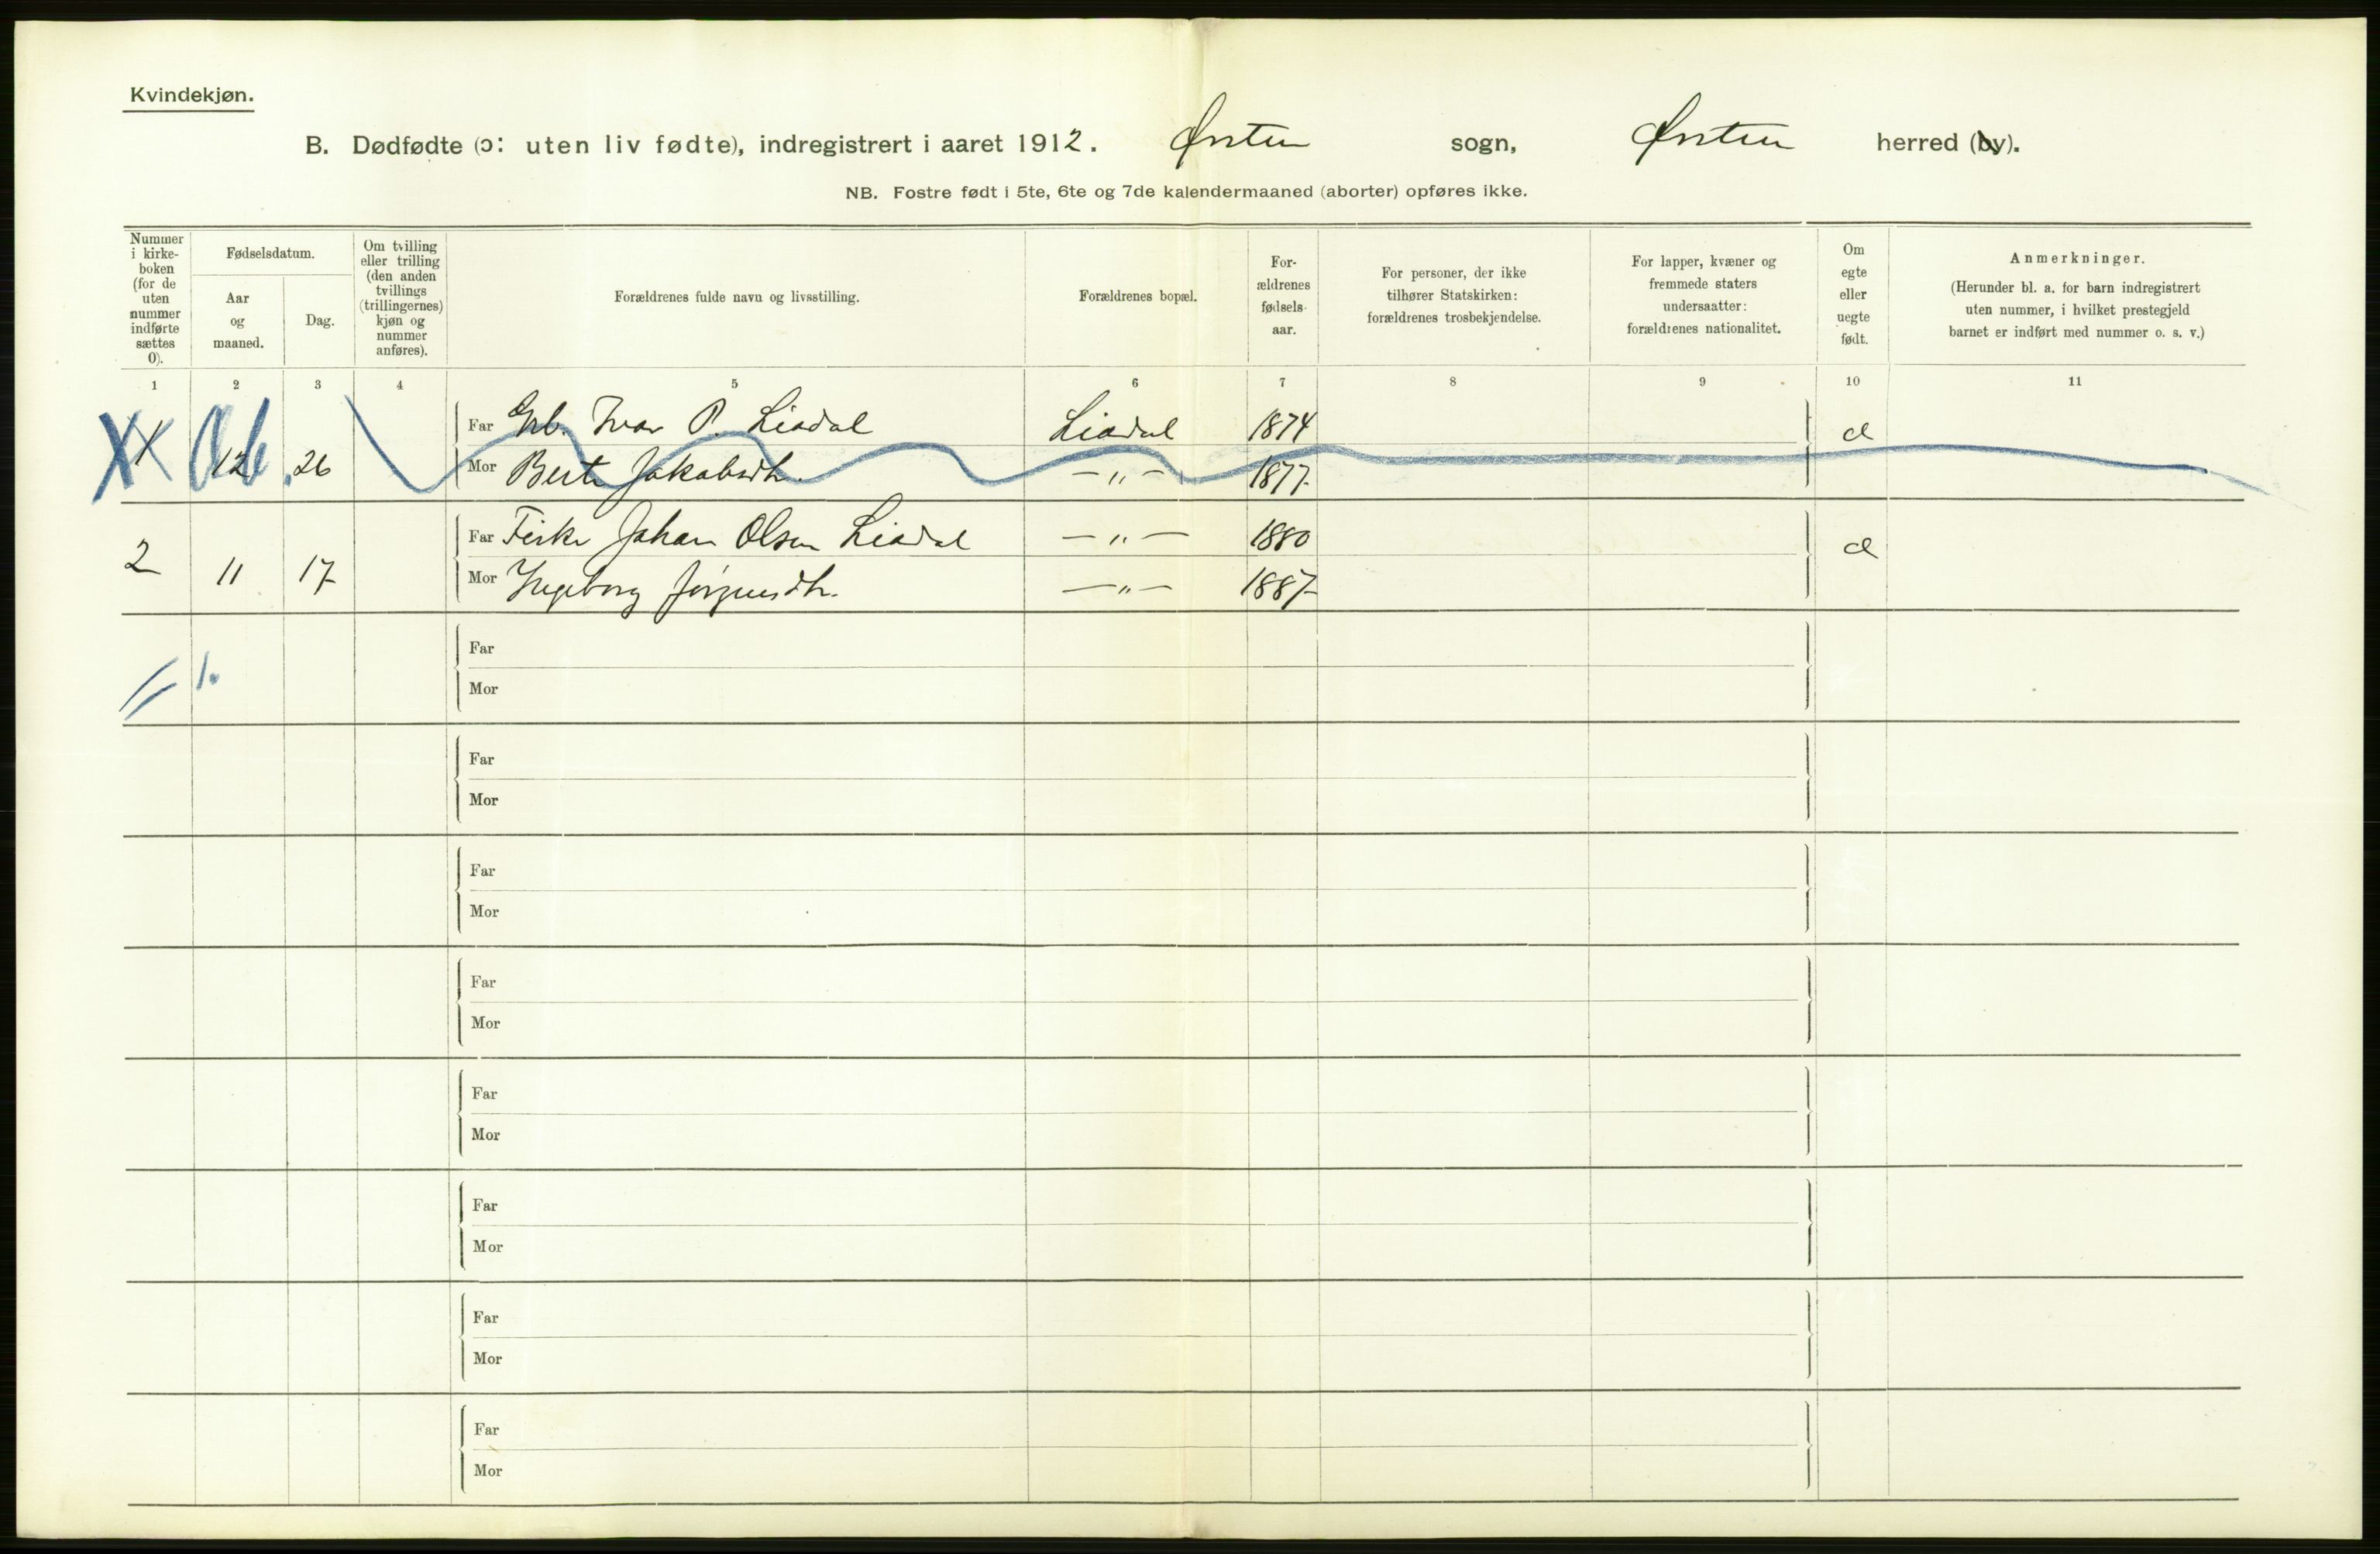 Kvindekjøn.
B. Dødfødte (ɔ: uten liv fødte), indregistrert i aaret 1912. Ørsten sogn, Ørsten herred (by).
NB. Fostre født i 5te, 6te og 7de kalendermaaned (aborter) opføres ikke.
Nummer i kirke-boken (for de uten nummer indførte sættes 0).
Fødselsdatum.
Aar og maaned.
Dag.
Om tvilling eller trilling (den anden tvillings (trillingernes) kjøn og nummer anføres).
Forældrenes fulde navn og livsstilling.
Forældrenes bopæl.
For-ældrenes fødsels-aar.
For personer, der ikke tilhører Statskirken: forældrenes trosbekjendelse.
For lapper, kvæner og fremmede staters undersaatter: forældrenes nationalitet.
Om egte eller uegte født.
Anmerkninger.
(Herunder bl. a. for barn indregistrert uten nummer, i hvilket prestegjeld barnet er indført med nummer o. s. v.)
1 2 3 4 5 6 7 8 9 10 11
Far Grb. Ivar P. Liadal Liadal 1874
1 12 26 Mor Berte Jakobsdtr. — " — 1877
Far Fisker Johan Olsen Liadal — " — 1880
2 11 17 Mor Ingeborg Jørgensdtr. — " — 1887
Far
1.
Mor
Far
Mor
Far
Mor
Far
Mor
Far
Mor
Far
Mor
Far
Mor
Far
Mor